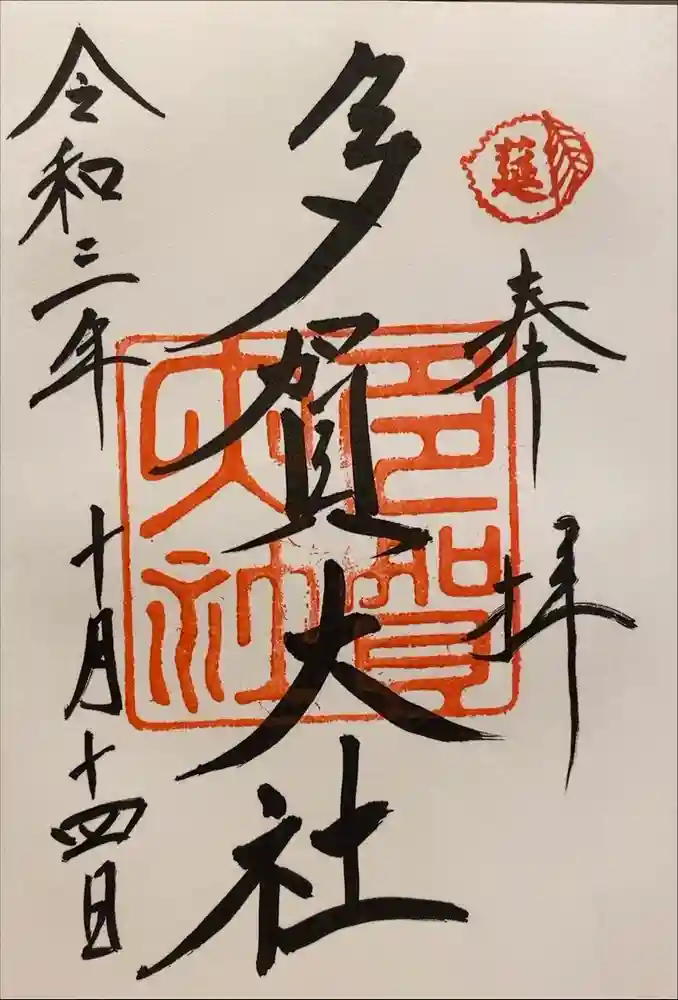 莚
奉拝
多賀大社
多賀大社
令和三年十月十四日